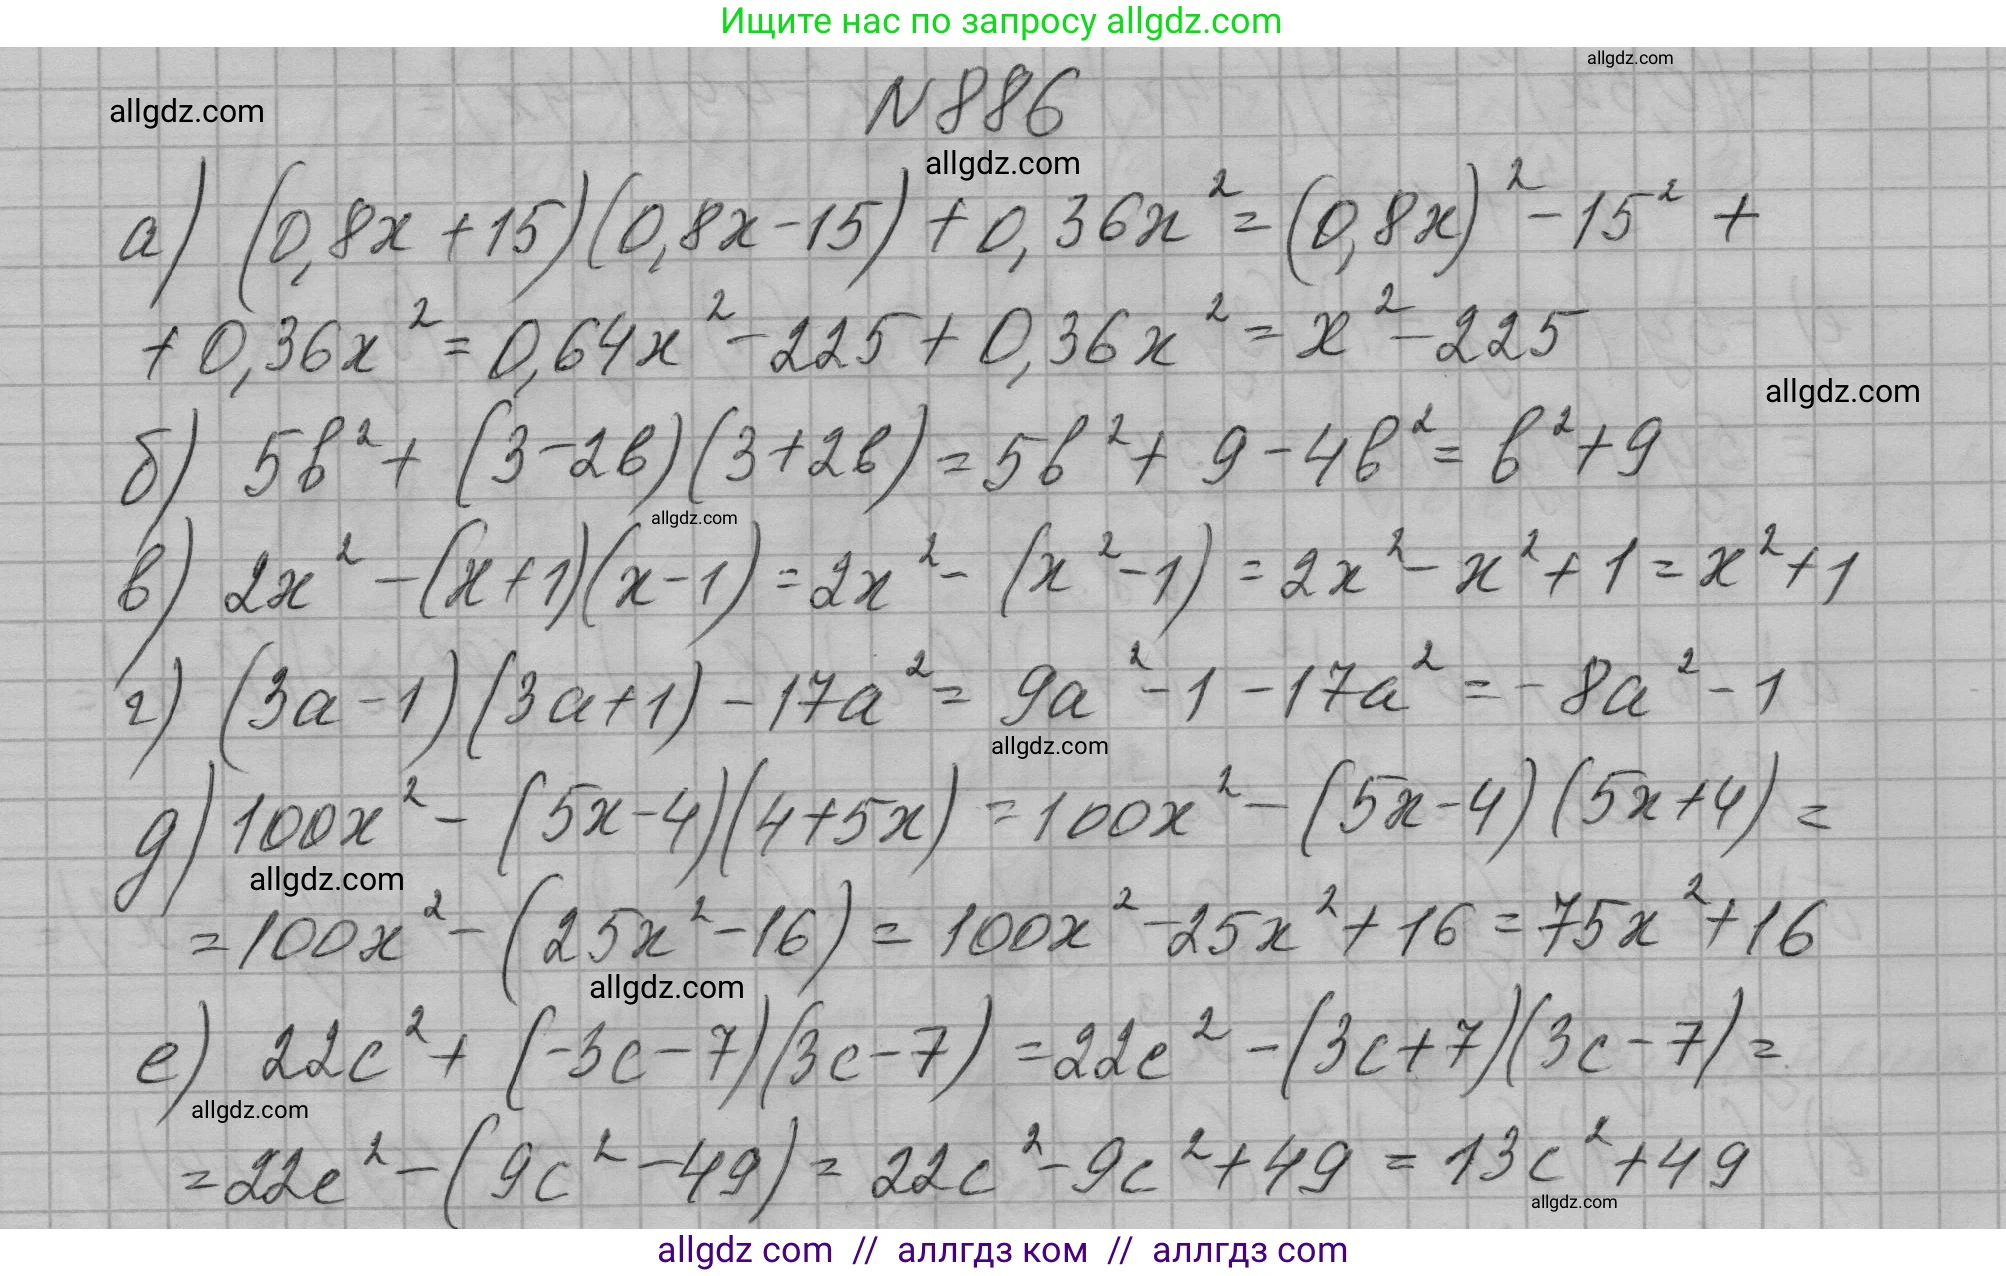 Ищите нас по запросу allgdz.com
allgdz.com
allgdz.com
N886
allgdz.com
а) (0,8x+15)(0,8x-15)+0,36x²=(0,8x)²-15²+
+0,36x²=0,64x²-225+0,36x²=x²-225
allgdz.com
б) 5b²+(3-2b)(3+2b)=5b²+9-4b²=b²+9
allgdz.com
в) 2x²-(x+1)(x-1)=2x²-(x²-1)=2x²-x²+1=x²+1
г) (3a-1)(3a+1)-17a²=9a²-1-17a²=-8a²-1
allgdz.com
д) 100x²-(5x-4)(4+5x)=100x²-(5x-4)(5x+4)=
allgdz.com
=100x²-(25x²-16)=100x²-25x²+16=75x²+16
allgdz.com
е) 22c²+(-3c-7)(3c-7)=22c²-(3c+7)(3c-7)=
allgdz.com
=22c²-(9c²-49)=22c²-9c²+49=13c²+49
allgdz.com
allgdz com // аллгдз ком // аллгдз com